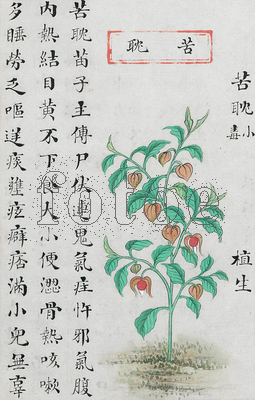 苦耽 小毒
植生
苦耽
苦耽苗子主傳尸伏連鬼氣疰忤邪氣腹
內熱結目黃不下食大小便澀骨熱咳嗽
多睡勞乏嘔逆痰壅痃癖痞滿小兒無辜
fotoe